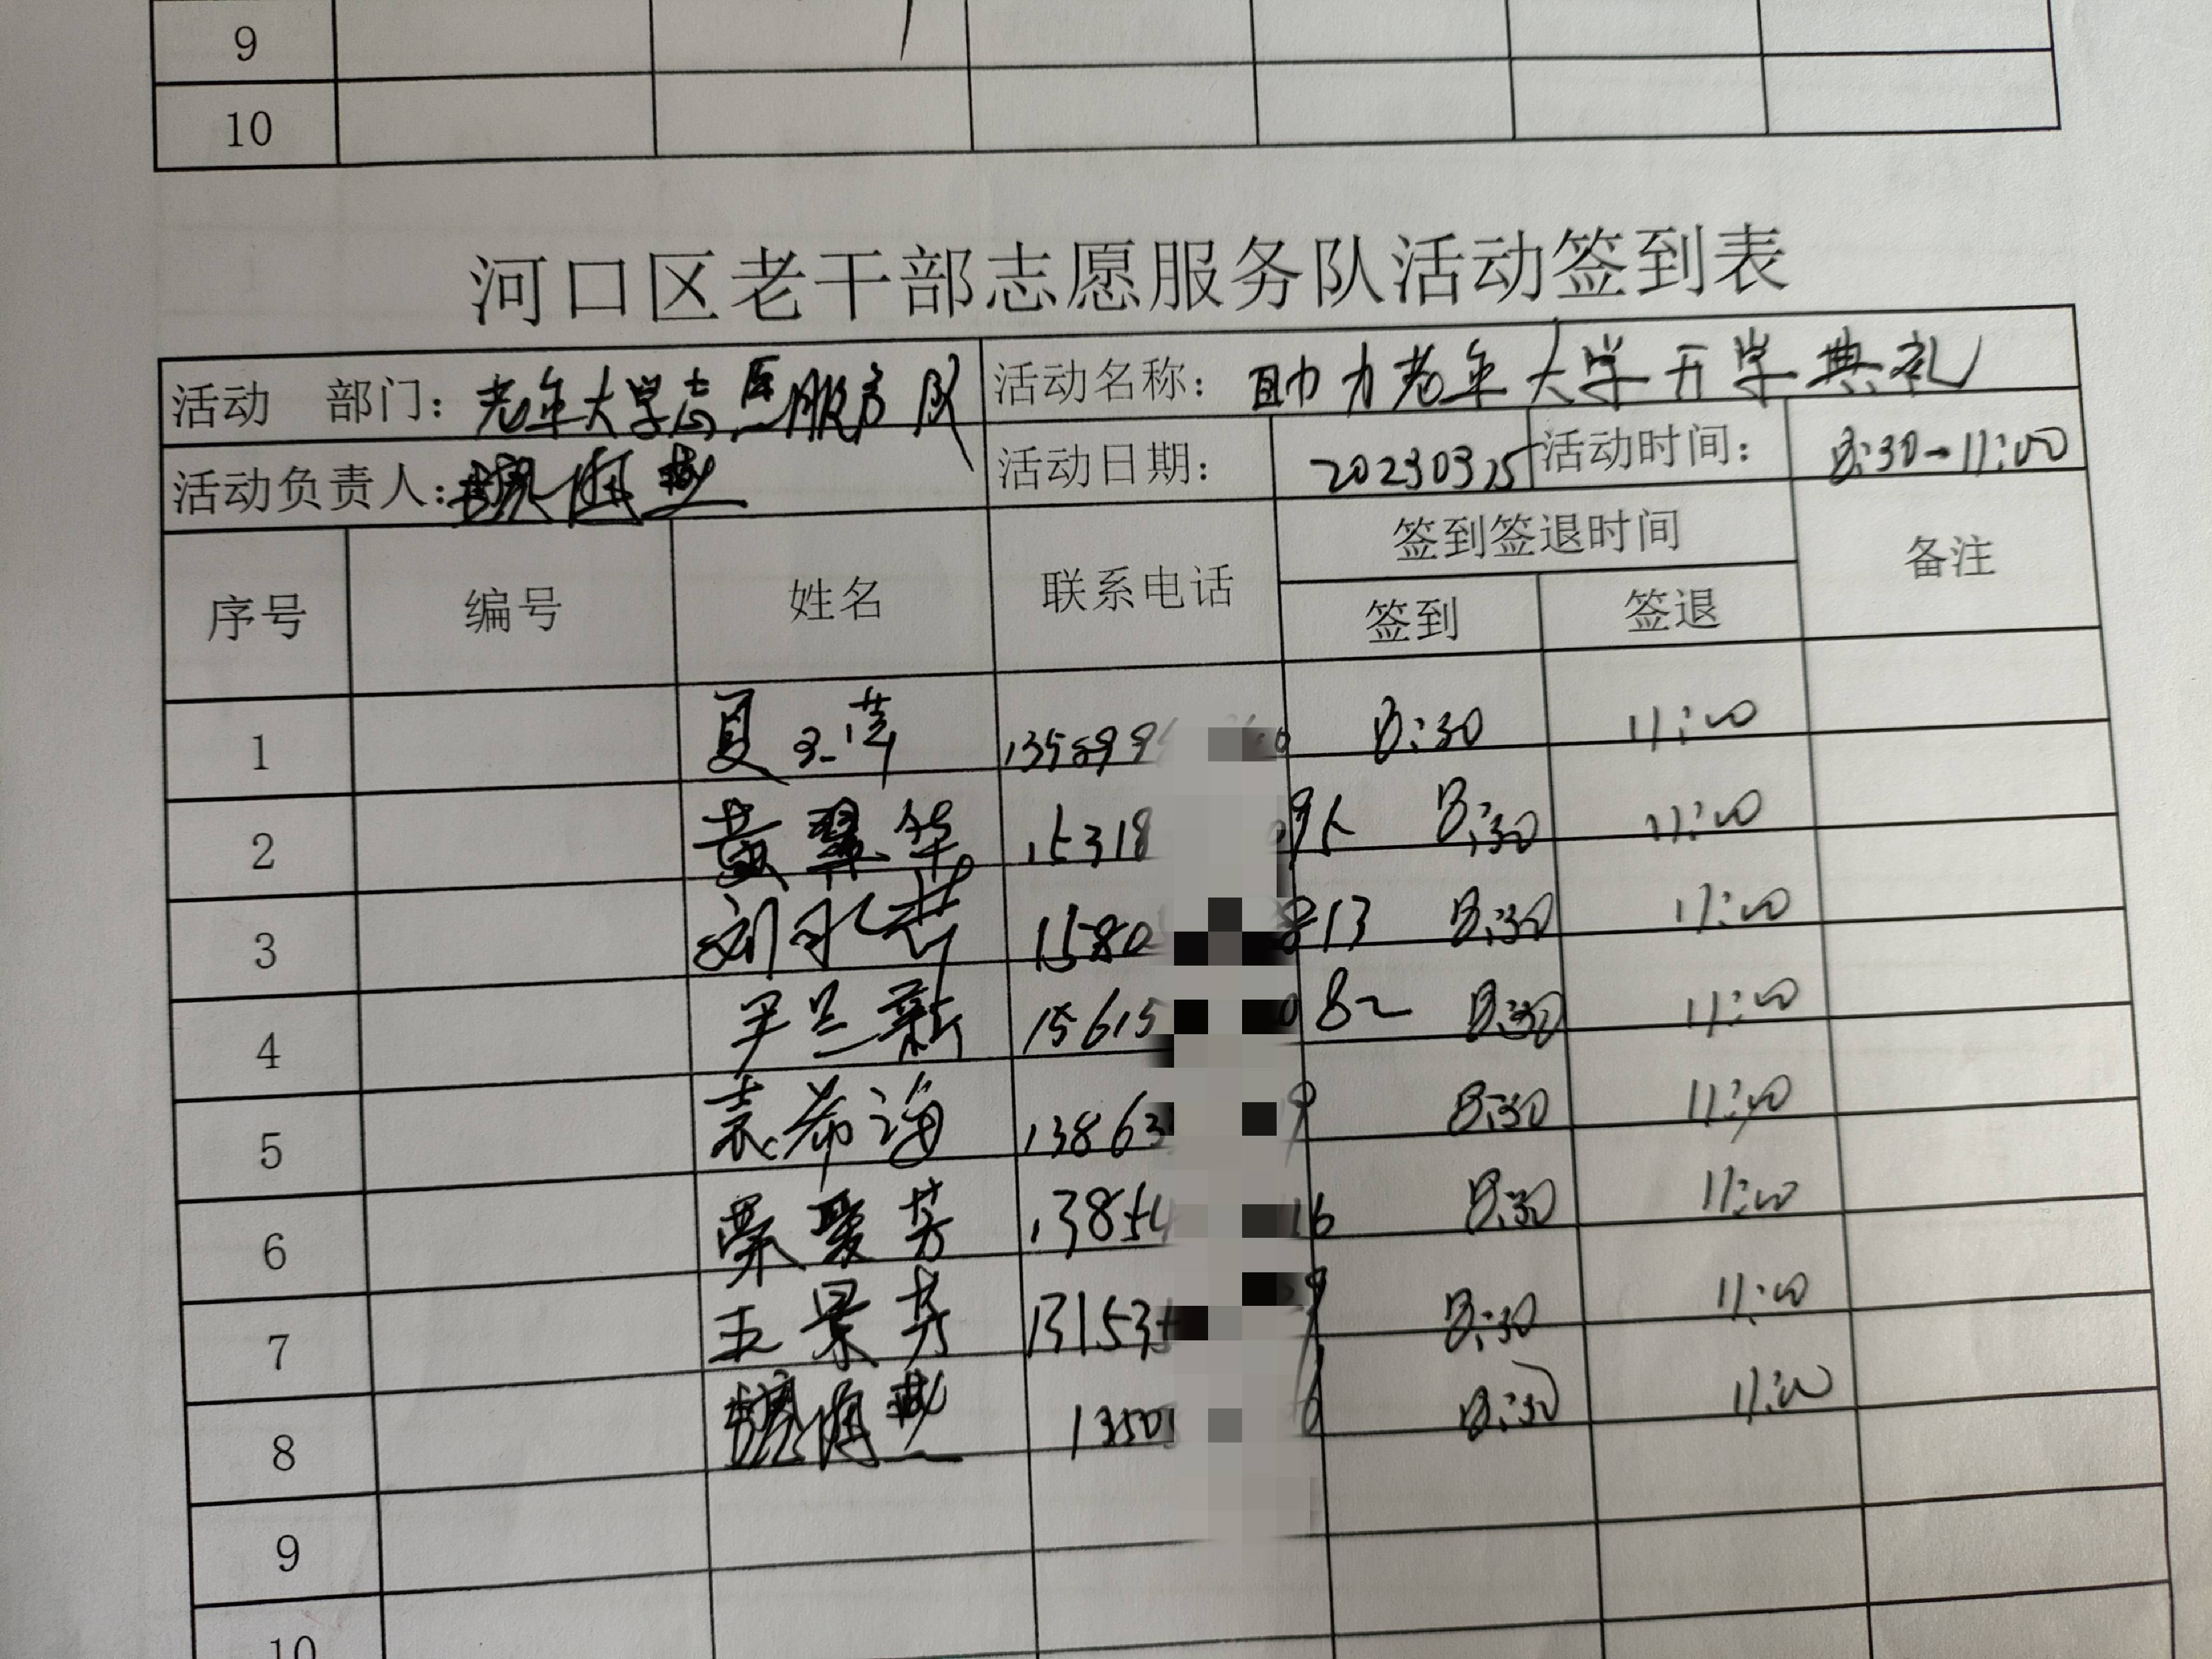 9
10
河口区老干部志愿服务队活动签到表
活动 部门：老年大学志愿服务队 活动名称：助力老年大学开学典礼
活动负责人： 活动日期： 20230325 活动时间： 8:30-11:00
序号 编号 姓名 联系电话 签到签退时间 备注
签到 签退
1 夏 135899 8:30 11:00
2 黄翠华 15318 95 8:30 11:00
3 刘 1580 813 8:30 11:00
4 兰新 15615 082 8:30 11:00
5 袁希海 13863 9 8:30 11:00
6 栗爱芳 13854 16 8:30 11:00
7 王景芳 13153 9 8:30 11:00
8 13505 6 8:30 11:00
9
10